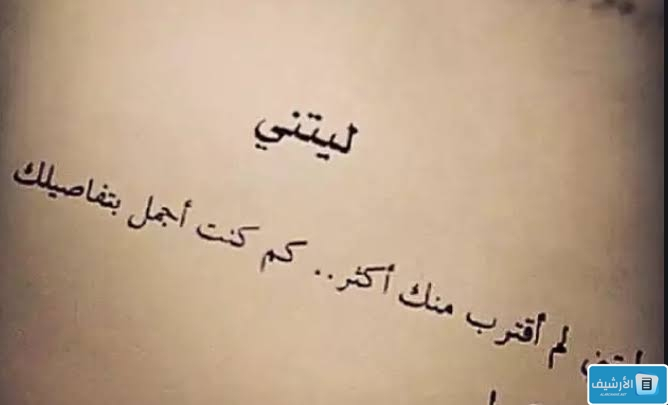 ليتني
ليتني لم أقترب منك أكثر.. كم كنت أجمل بتفاصيلك
الأرشيف